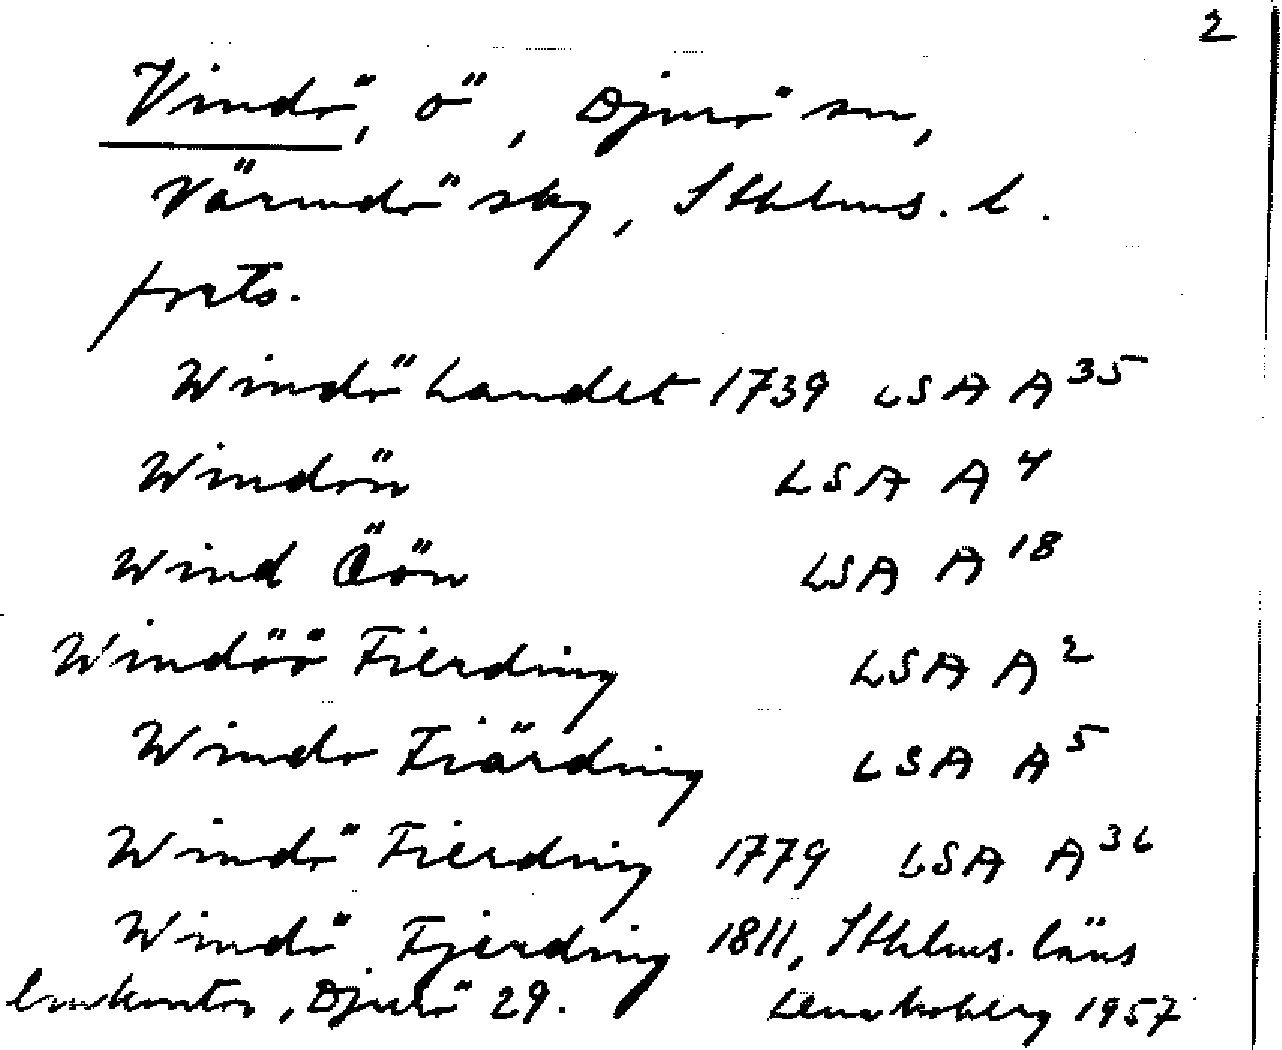 2
Vindö, ö, Djurö sn,
Värmdö skg, Sthlms. l.
forts.
Windö Landet 1739 LSA A 35
Windön LSA A 4
Wind Öön LSA A 18
Windöö Fierding LSA A 2
Windo Fiärding LSA A 5
Windö Fierding 1779 LSA A 36
Windö Fjerding 1811, Sthlms. läns
lmkontor, Djurö 29. 1957